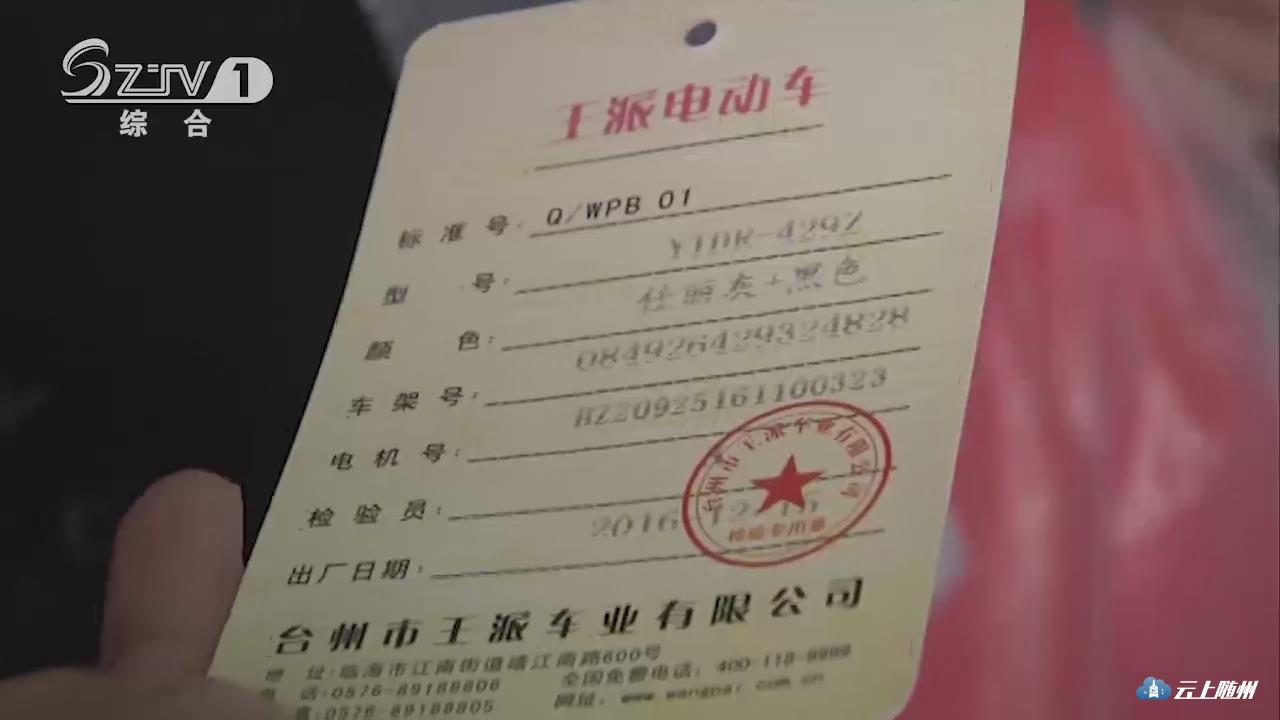 SZTV 1
综 合
王派电动车
标 准 号: Q/WPB 01
型 号: YTDR-429Z
颜 色: 仕丽亮+黑色
车 架 号: 084926429324828
电 机 号: HZ20925161100323
检 验 员:
出厂日期: 2016
台州市王派车业有限公司
检验专用章
台州市王派车业有限公司
地 址:临海市江南街道靖江南路600号
电 话:0576-89188806 全国免费电话: 400-118-9999
真:0576-89188805 网址: www.wangpai.com.cn
云上随州